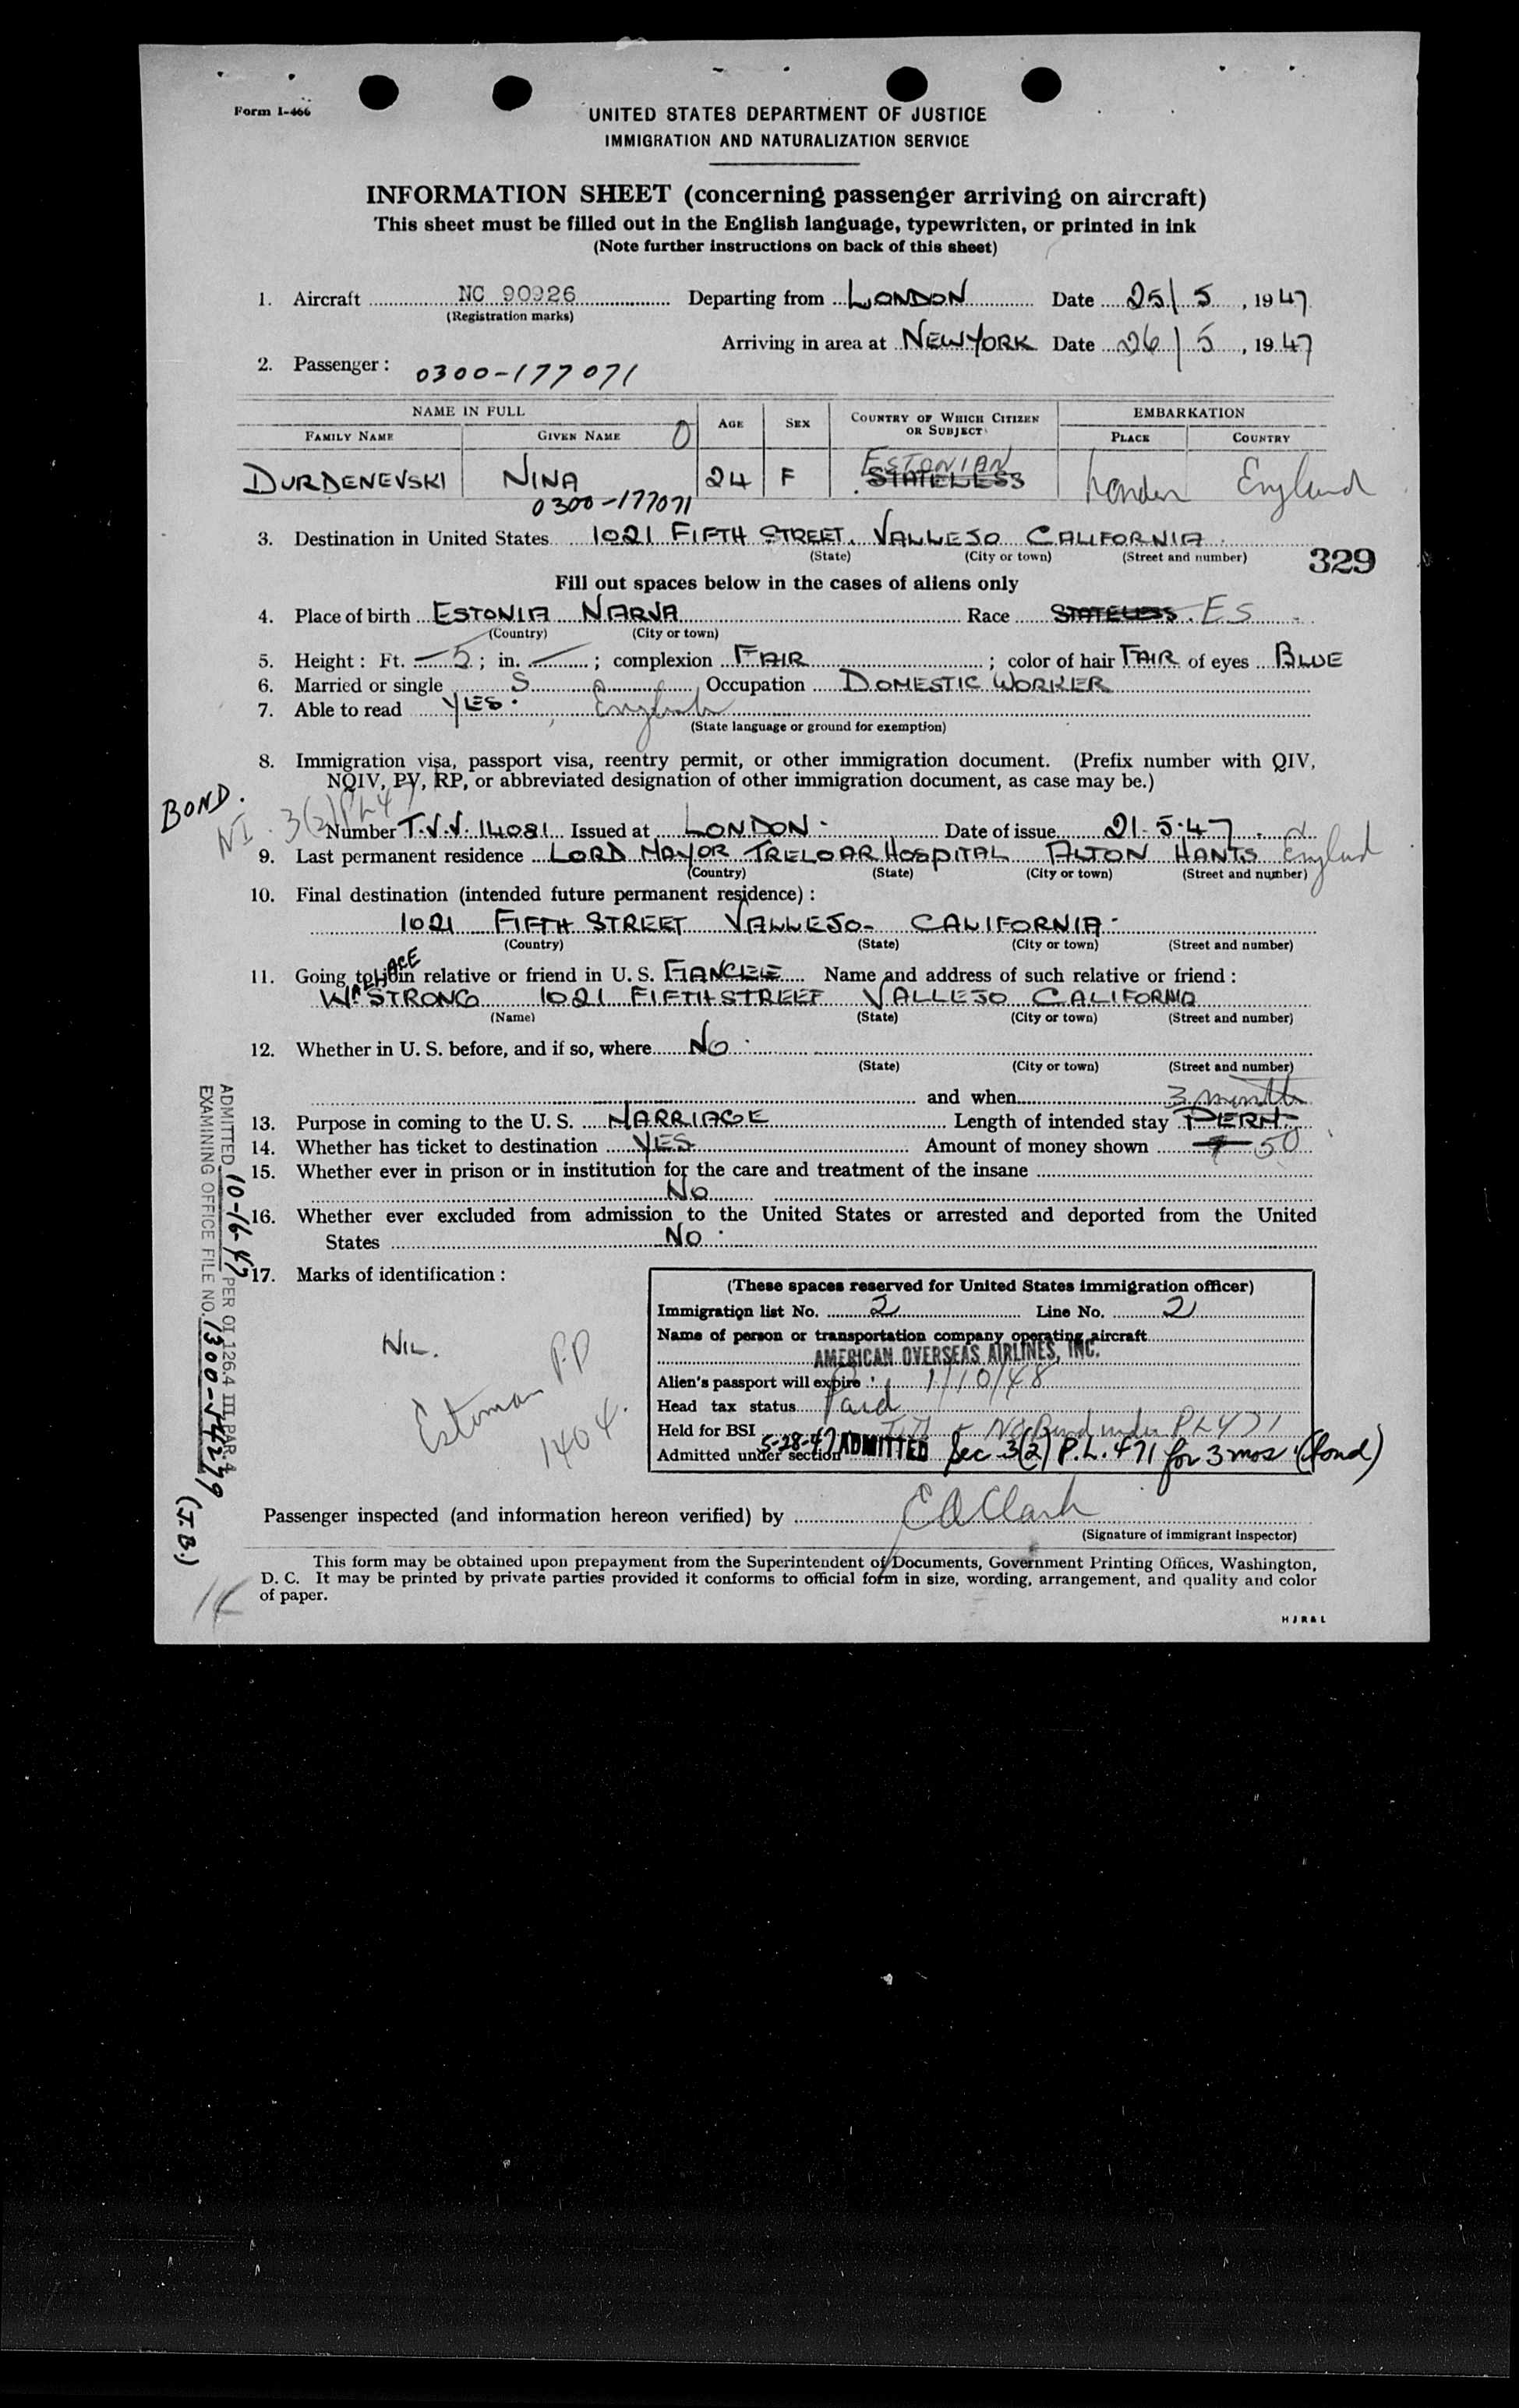 Form I-466
UNITED STATES DEPARTMENT OF JUSTICE
IMMIGRATION AND NATURALIZATION SERVICE
INFORMATION SHEET (concerning passenger arriving on aircraft)
This sheet must be filled out in the English language, typewritten, or printed in ink
(Note further instructions on back of this sheet)
1. Aircraft NC 90926 Departing from LONDON Date 25/5, 1947
(Registration marks)
Arriving in area at NEW YORK Date 26/5, 1947
2. Passenger: 0300-177071
NAME IN FULL AGE SEX COUNTRY OF WHICH CITIZEN OR SUBJECT EMBARKATION
FAMILY NAME GIVEN NAME PLACE COUNTRY
ESTONIAN
DURDENEVSKI NINA 24 F STATELESS London England
0300-177071
3. Destination in United States 1021 FIFTH STREET. VALLEJO CALIFORNIA
(State) (City or town) (Street and number)
329
Fill out spaces below in the cases of aliens only
4. Place of birth ESTONIA NARVA Race STATELESS. ES
(Country) (City or town)
5. Height: Ft. 5; in. —; complexion FAIR; color of hair FAIR of eyes BLUE
6. Married or single S Occupation DOMESTIC WORKER
7. Able to read YES. English
(State language or ground for exemption)
8. Immigration visa, passport visa, reentry permit, or other immigration document. (Prefix number with QIV,
NQIV, PV, RP, or abbreviated designation of other immigration document, as case may be.)
BOND.
NI. 3(2) PL 47
Number T.V.V. 14081 Issued at LONDON Date of issue 21.5.47
9. Last permanent residence LORD MAYOR TRELOAR HOSPITAL ALTON HANTS England
(Country) (State) (City or town) (Street and number)
10. Final destination (intended future permanent residence):
1021 FIFTH STREET VALLEJO- CALIFORNIA
(Country) (State) (City or town) (Street and number)
11. Going to join relative or friend in U. S. FIANCEE Name and address of such relative or friend:
WALLACE STRONG 1021 FIFTH STREET VALLEJO CALIFORNIA
(Name) (State) (City or town) (Street and number)
12. Whether in U. S. before, and if so, where NO
(State) (City or town) (Street and number)
and when
3 months
13. Purpose in coming to the U. S. MARRIAGE Length of intended stay PERM.
14. Whether has ticket to destination YES Amount of money shown 50
15. Whether ever in prison or in institution for the care and treatment of the insane
NO
16. Whether ever excluded from admission to the United States or arrested and deported from the United
States NO
17. Marks of identification:
NIL.
Estonian PP
1404.
(These spaces reserved for United States immigration officer)
Immigration list No. 2 Line No. 2
Name of person or transportation company operating aircraft
AMERICAN OVERSEAS AIRLINES, INC.
Alien's passport will expire 1/10/48
Head tax status Paid
Held for BSI No Bond under PL 471
Admitted under section 5-28-47 ADMITTED Sec 3(2) P.L. 471 for 3 mos. (bond)
Passenger inspected (and information hereon verified) by E A Clark
(Signature of immigrant inspector)
This form may be obtained upon prepayment from the Superintendent of Documents, Government Printing Offices, Washington,
D. C. It may be printed by private parties provided it conforms to official form in size, wording, arrangement, and quality and color
of paper.
HJR&L
ADMITTED 10-16-47 PER OI 126.4 III PAR. 4
EXAMINING OFFICE FILE NO. 1300-54229
(J.B.)